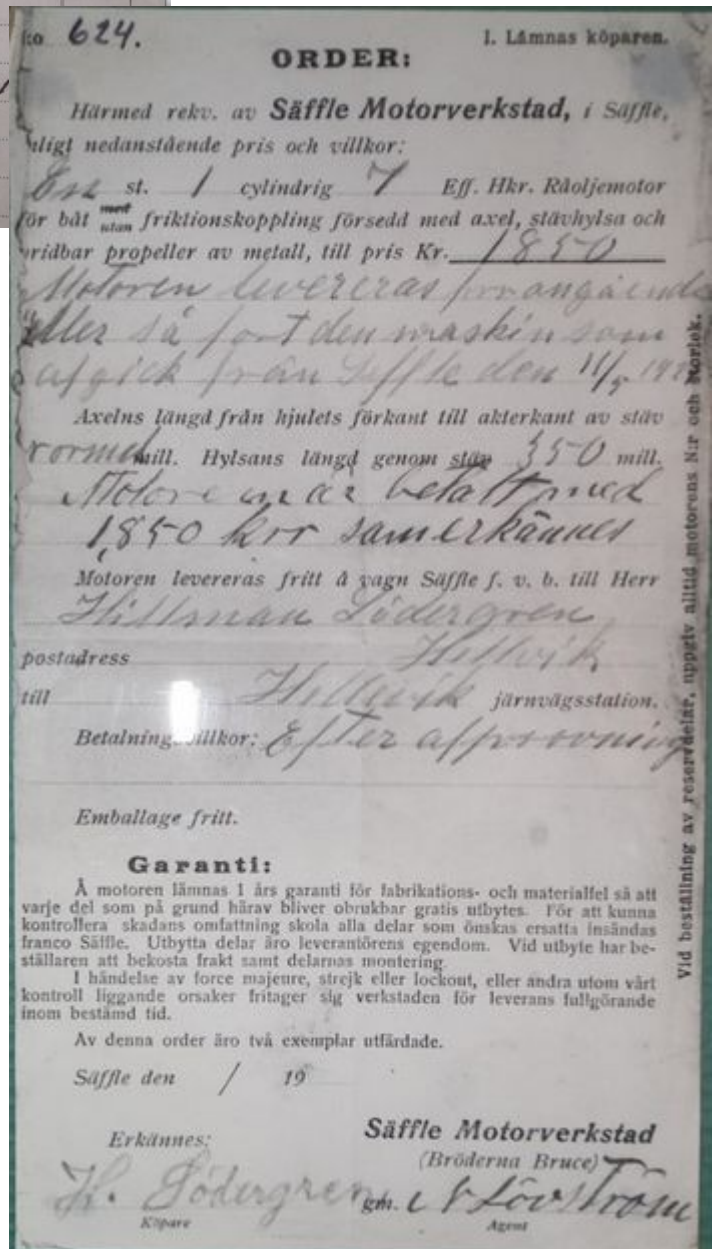 624.
1. Lämnas köparen.
ORDER:
Härmed rekv. av Säffle Motorverkstad, i Säffle,
nligt nedanstående pris och villkor:
En st. 1 cylindrig 7 Eff. Hkr. Råoljemotor
för båt med utan friktionskoppling försedd med axel, stävhylsa och
vridbar propeller av metall, till pris Kr. 1850
Motoren levereras
eller så fort den maskin som
afgick från Seffle den 11/5
Axelns längd från hjulets förkant till akterkant av stäv
mill. Hylsans längd genom stäv 350 mill.
Motoren är betalt med
1,850 kr som erkännes
Motoren levereras fritt å vagn Säffle f. v. b. till Herr
Hillman Södergren
postadress Hillevik
till Hillevik järnvägsstation.
Betalningsvillkor: Efter afprovning
Emballage fritt.
Garanti:
Å motoren lämnas 1 års garanti för fabrikations- och materialfel så att
varje del som på grund härav bliver obrukbar gratis utbytes. För att kunna
kontrollera skadans omfattning skola alla delar som önskas ersatta insändas
franco Säffle. Utbytta delar äro leverantörens egendom. Vid utbyte har be-
ställaren att bekosta frakt samt delarnas montering.
I händelse av force majeure, strejk eller lockout, eller andra utom vårt
kontroll liggande orsaker fritager sig verkstaden för leverans fullgörande
inom bestämd tid.
Av denna order äro två exemplar utfärdade.
Säffle den / 19
Erkännes:
Säffle Motorverkstad
(Bröderna Bruce)
H. Södergren gm. N Lövström
Köpare Agent
Vid beställning av reservdelar, uppgiv alltid motorens N:r och storlek.